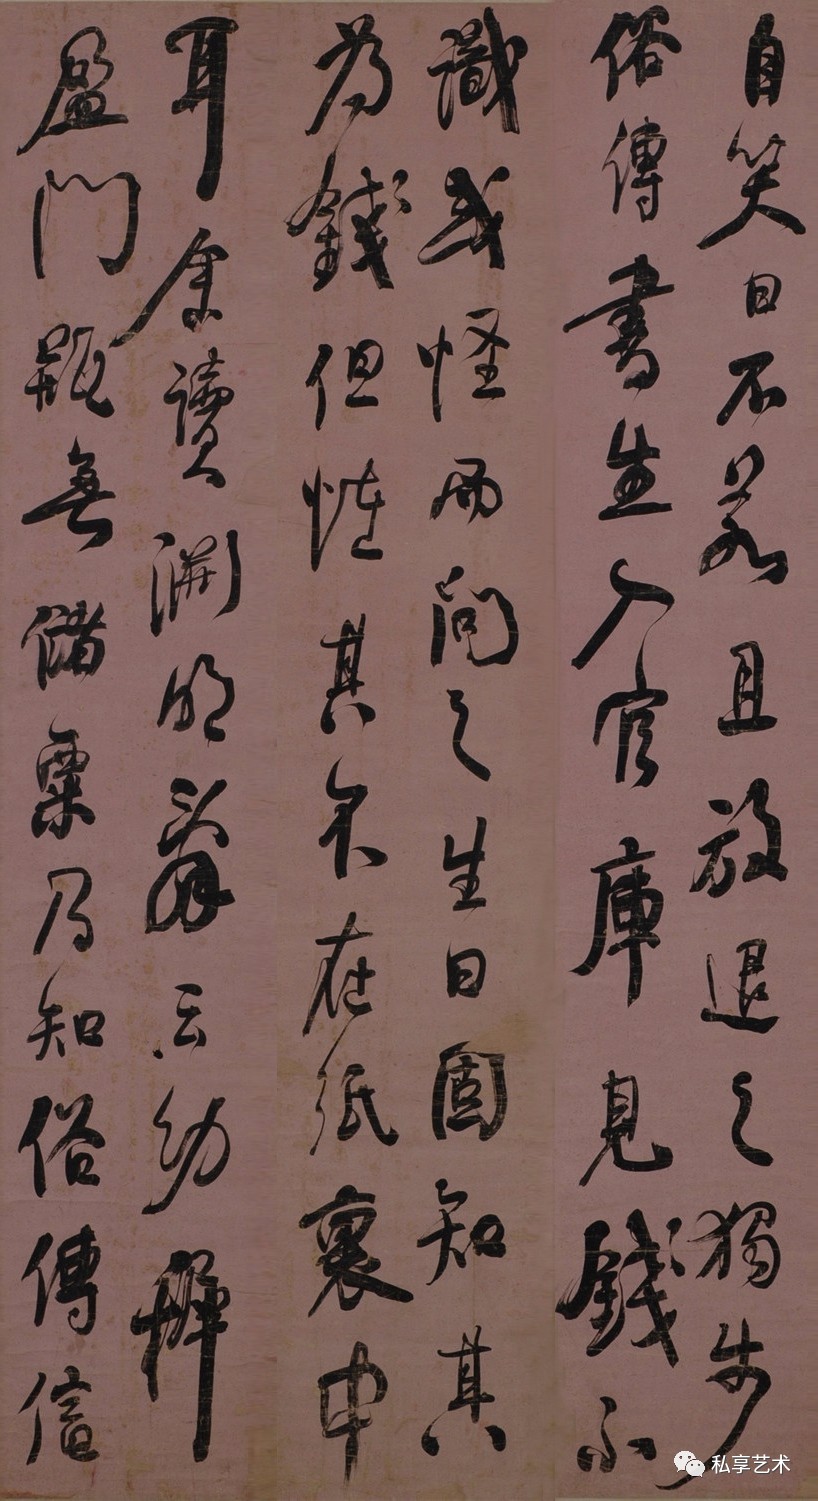 自笑曰不若且放退之獨步
俗傳書生入官庫見錢不
識或怪而問之生曰固知其
為錢但怪其不在紙裹中
耳余讀淵明辭云幼穉
盈門瓶無儲粟乃知俗傳信
私享艺术